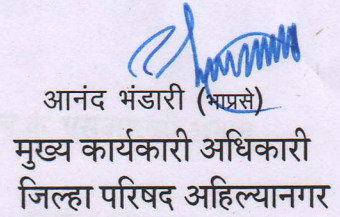 आनंद भंडारी (भाप्रसे)
मुख्य कार्यकारी अधिकारी
जिल्हा परिषद अहिल्यानगर